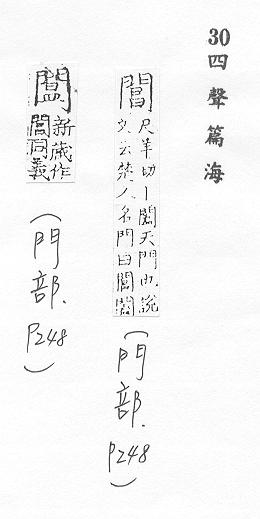 30四聲篇海
閶
尺羊切丨闔天門也說
文云楚人名門曰閶闔
(門部.P248)
新藏作
閶同義
(門部.P248)